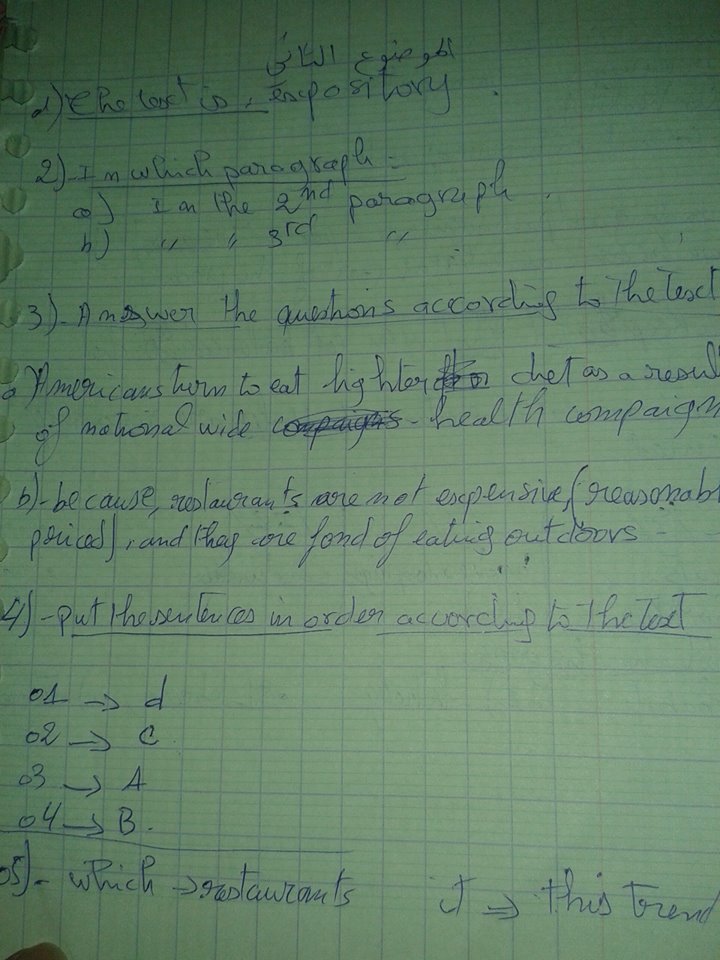 الموضوع الثاني
1) The text is. expository.
2)- In which paragraph:
a) In the 2nd paragraph.
b) " " 3rd "
3)- Answer the questions according to the text
a) Americans turn to eat lighter diet as a resul
of national wide - health compaign
b)- because, restaurants are not expensive, (reasonabl
priced), and they are fond of eating outdoors -
4)- put the sentences in order according to the text
01 → d
02 → C
03 → A
04 → B.
05)- which → restaurants it ⇒ this trend